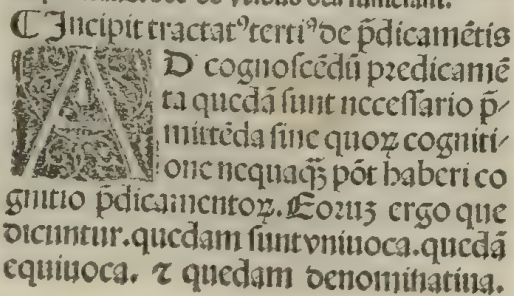 ¶ Incipit tractatꝰ tertiꝰ de p̃dicamẽtis
AD cognoſcẽdũ predicamẽ
ta quedã ſunt neceſſario p̃⸗
mittẽda ſine quoꝝ cogniti⸗
one nequaqȝ põt haberi co
gnitio p̃dicamentoꝝ. Eoruꝫ ergo que
dicuntur. quedam ſunt vniuoca. quedã
equiuoca. ⁊ quedam denominatiua.